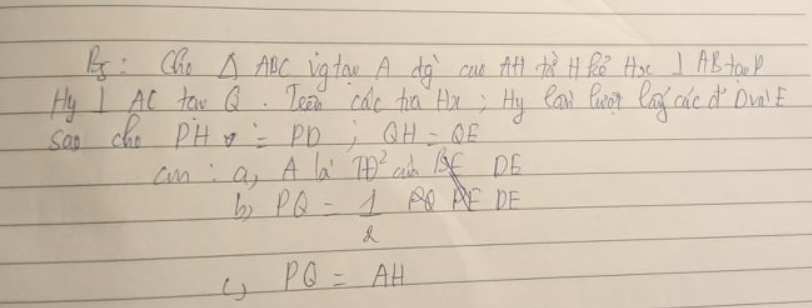 B5: Cho Δ ABC vg tại A đg cao AH từ H kẻ Hx ⊥ AB tại P
Hy ⊥ AC tại Q. Trên các tia Hx; Hy lần lượt lấy các đ' D và E
sao cho PH = PD; QH = QE
cm: a, A là TĐ² của DE
b, PQ = 1/2 DE
c, PQ = AH